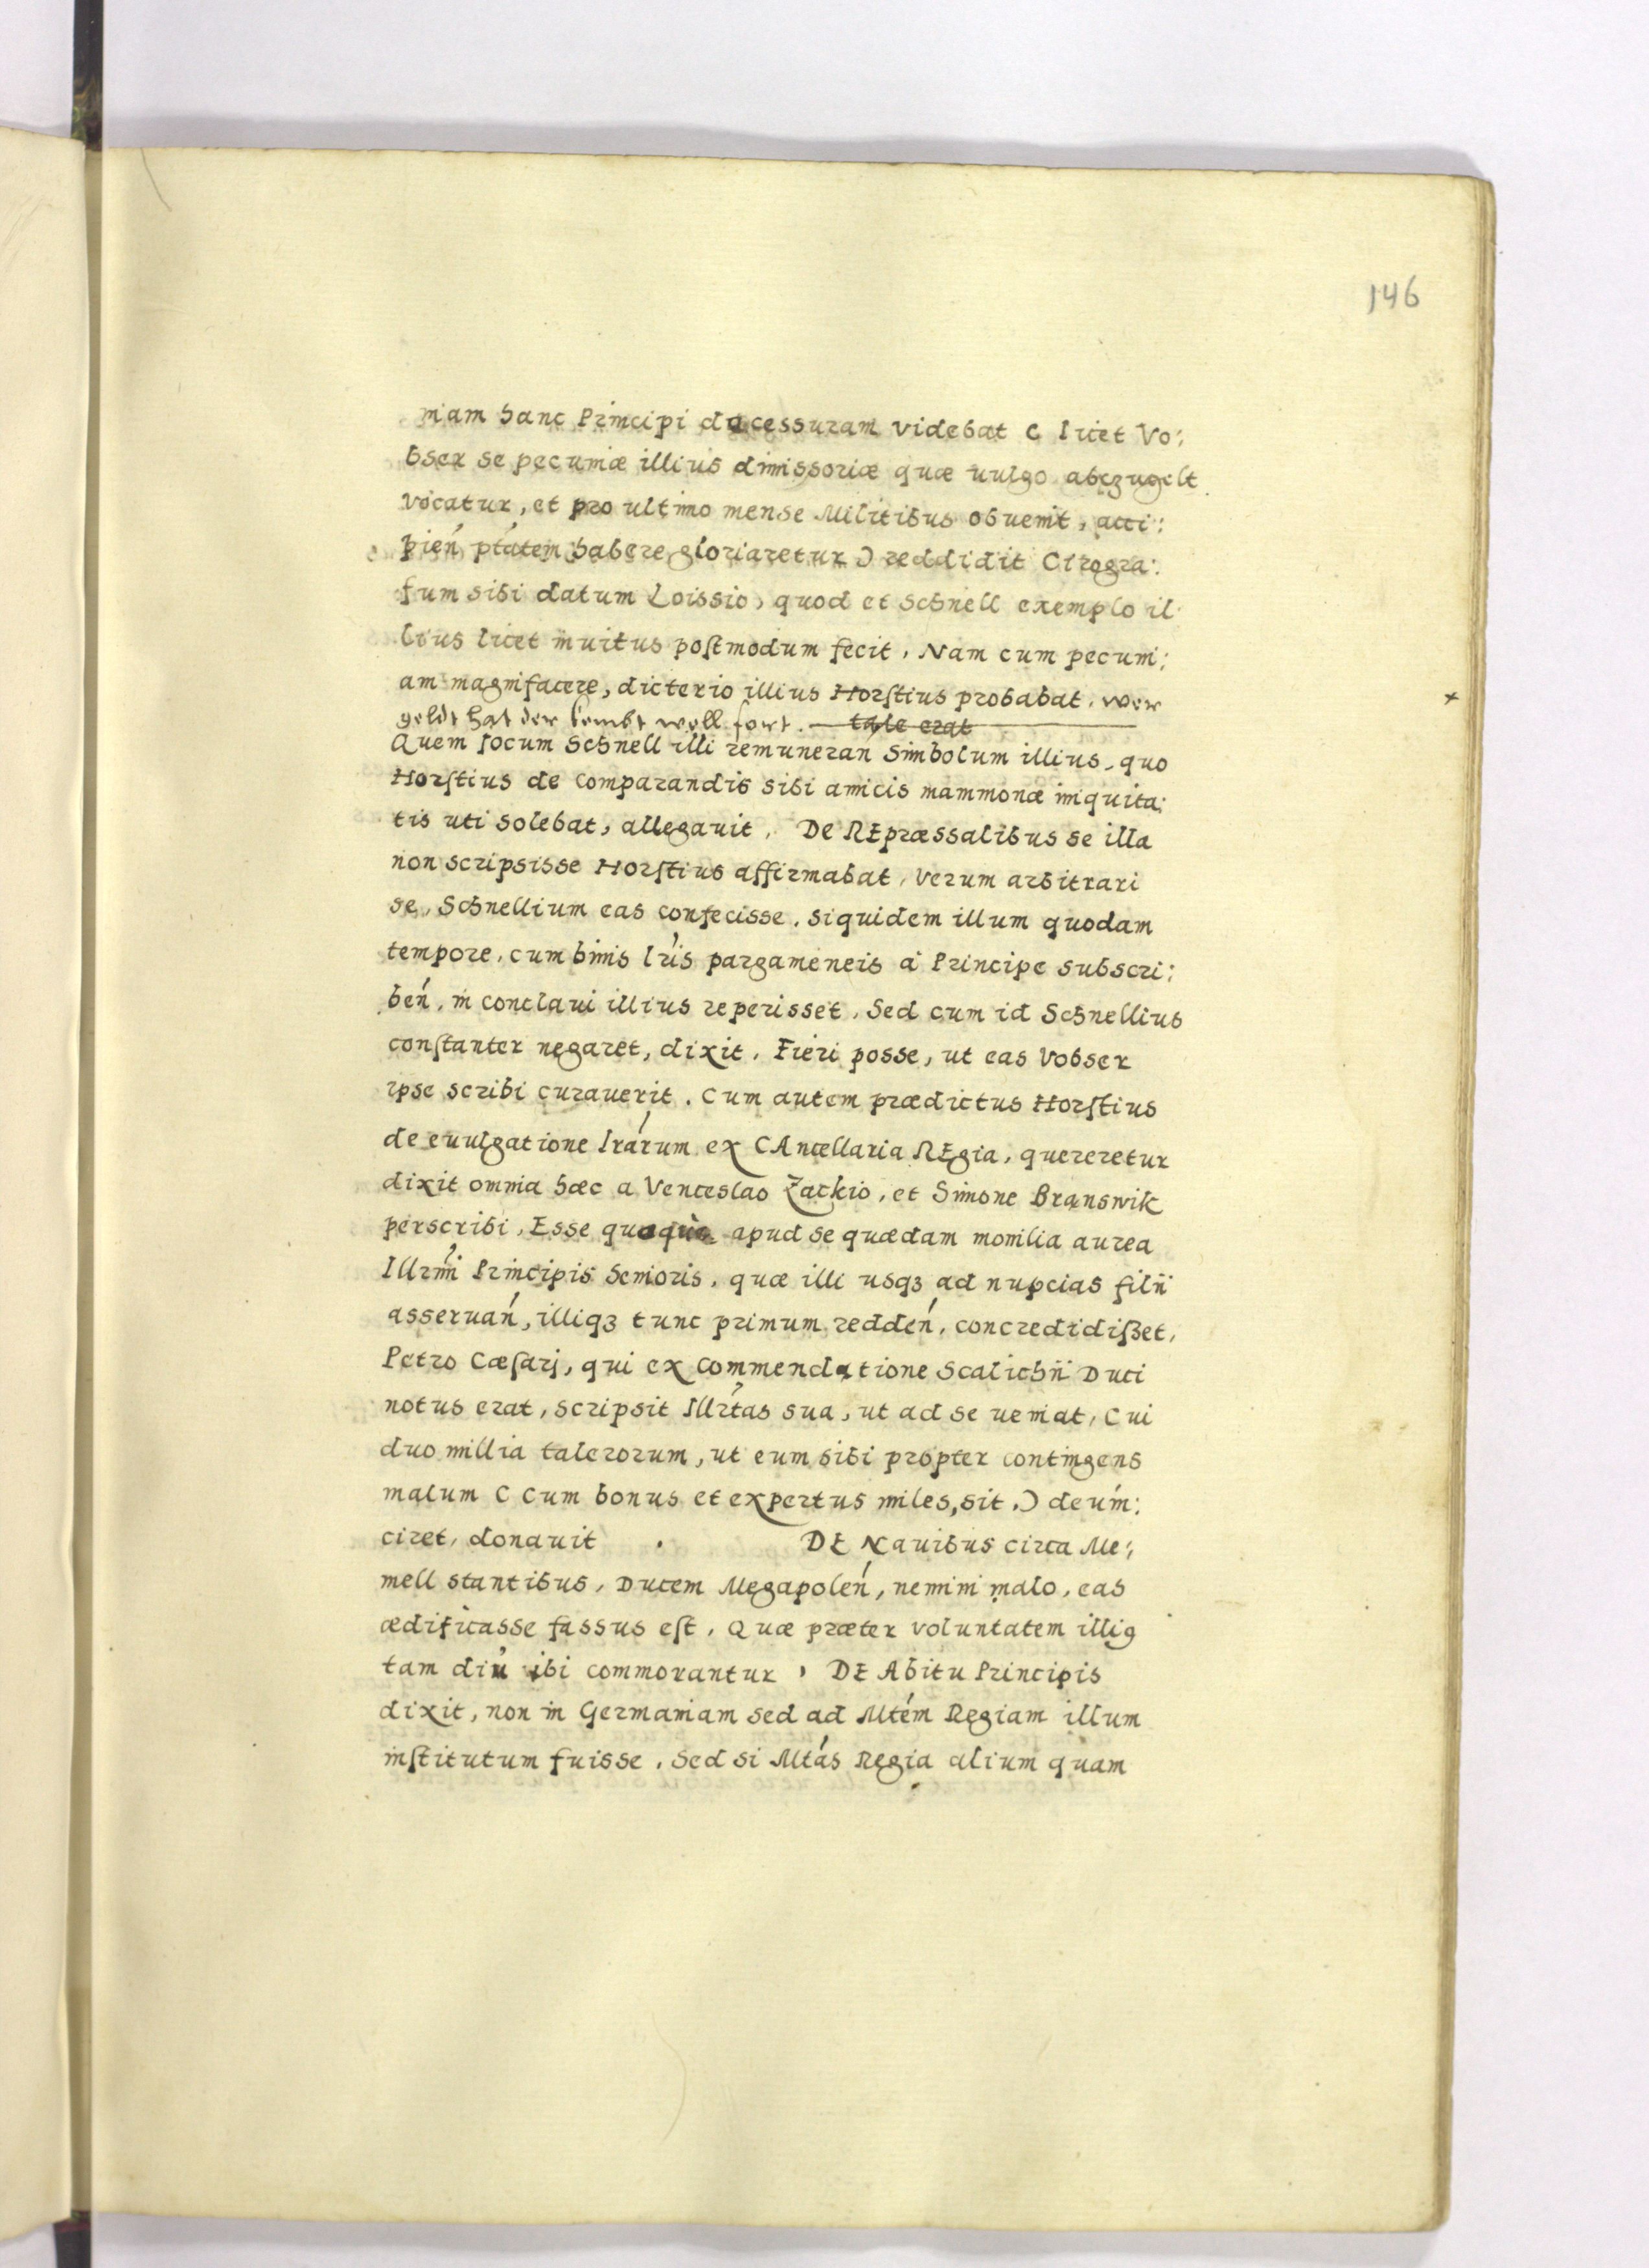 146
niam hanc Principi decessuram videbat ( licet Vo:
bser se pecuniæ illius dimissoriæ quæ uulgo abczugelt
vocatur, et pro ultimo mense Militibus obuenit, acci:
pień ptátem habere gloriaretur ) reddidit Cirogra:
fum sibi datum Loissio, quod et Schnell exemplo il
lius licet inuitus postmodum fecit, Nam cum pecuni:
am magnifacere, dicterio illius Horstius probabat, wer
geldt hat der kombt woll fort. tale erat
Quem Jocum Schnell illi remuneran Simbolum illius, quo
Horstius de comparandis sibi amicis mammonæ iniquita:
tis uti solebat, allegauit, De REpræssalibus se illa
non scripsisse Horstius affirmabat, Verum arbitrari
se, Schnellium eas confecisse, siquidem illum quodam
tempore, cum binis lrís pargameneis á Principe subscri:
beń, in conclaui illius reperisset, Sed cum id Schnellius
constanter negaret, dixit, Fieri posse, ut eas Vobser
ipse scribi curauerit. Cum autem prædictus Horstius
de euulgatione lrárum ex CAncellaria REgia, quereretur
dixit omnia hæc a Venceslao Zackio, et Simone Branswik
perscribi, Esse quoque apud se quædam monilia aurea
Illrmi Principis Senioris, quæ illi usqȝ ad nupcias filii
asseruań, illiqȝ tunc primum reddeń, concredidißet,
Petro Cæsarj, qui ex commendatione Scalichii Duci
notus erat, scripsit Illrtas sua, ut ad se ueniat, Cui
duo millia talerorum, ut eum sibi propter contingens
malum ( cum bonus et expertus miles, sit, ) deuin:
ciret, donauit . DE Nauibus circa Me:
mell stantibus, Ducem Megapoleń, nemini malo, eas
ædificasse fassus est, Quæ præter voluntatem illiꝯ
tam diu ibi commorantur, DE Abitu Principis
dixit, non in Germaniam sed ad Mtém Regiam illum
institutum fuisse, Sed si Mtás Regia alium quam